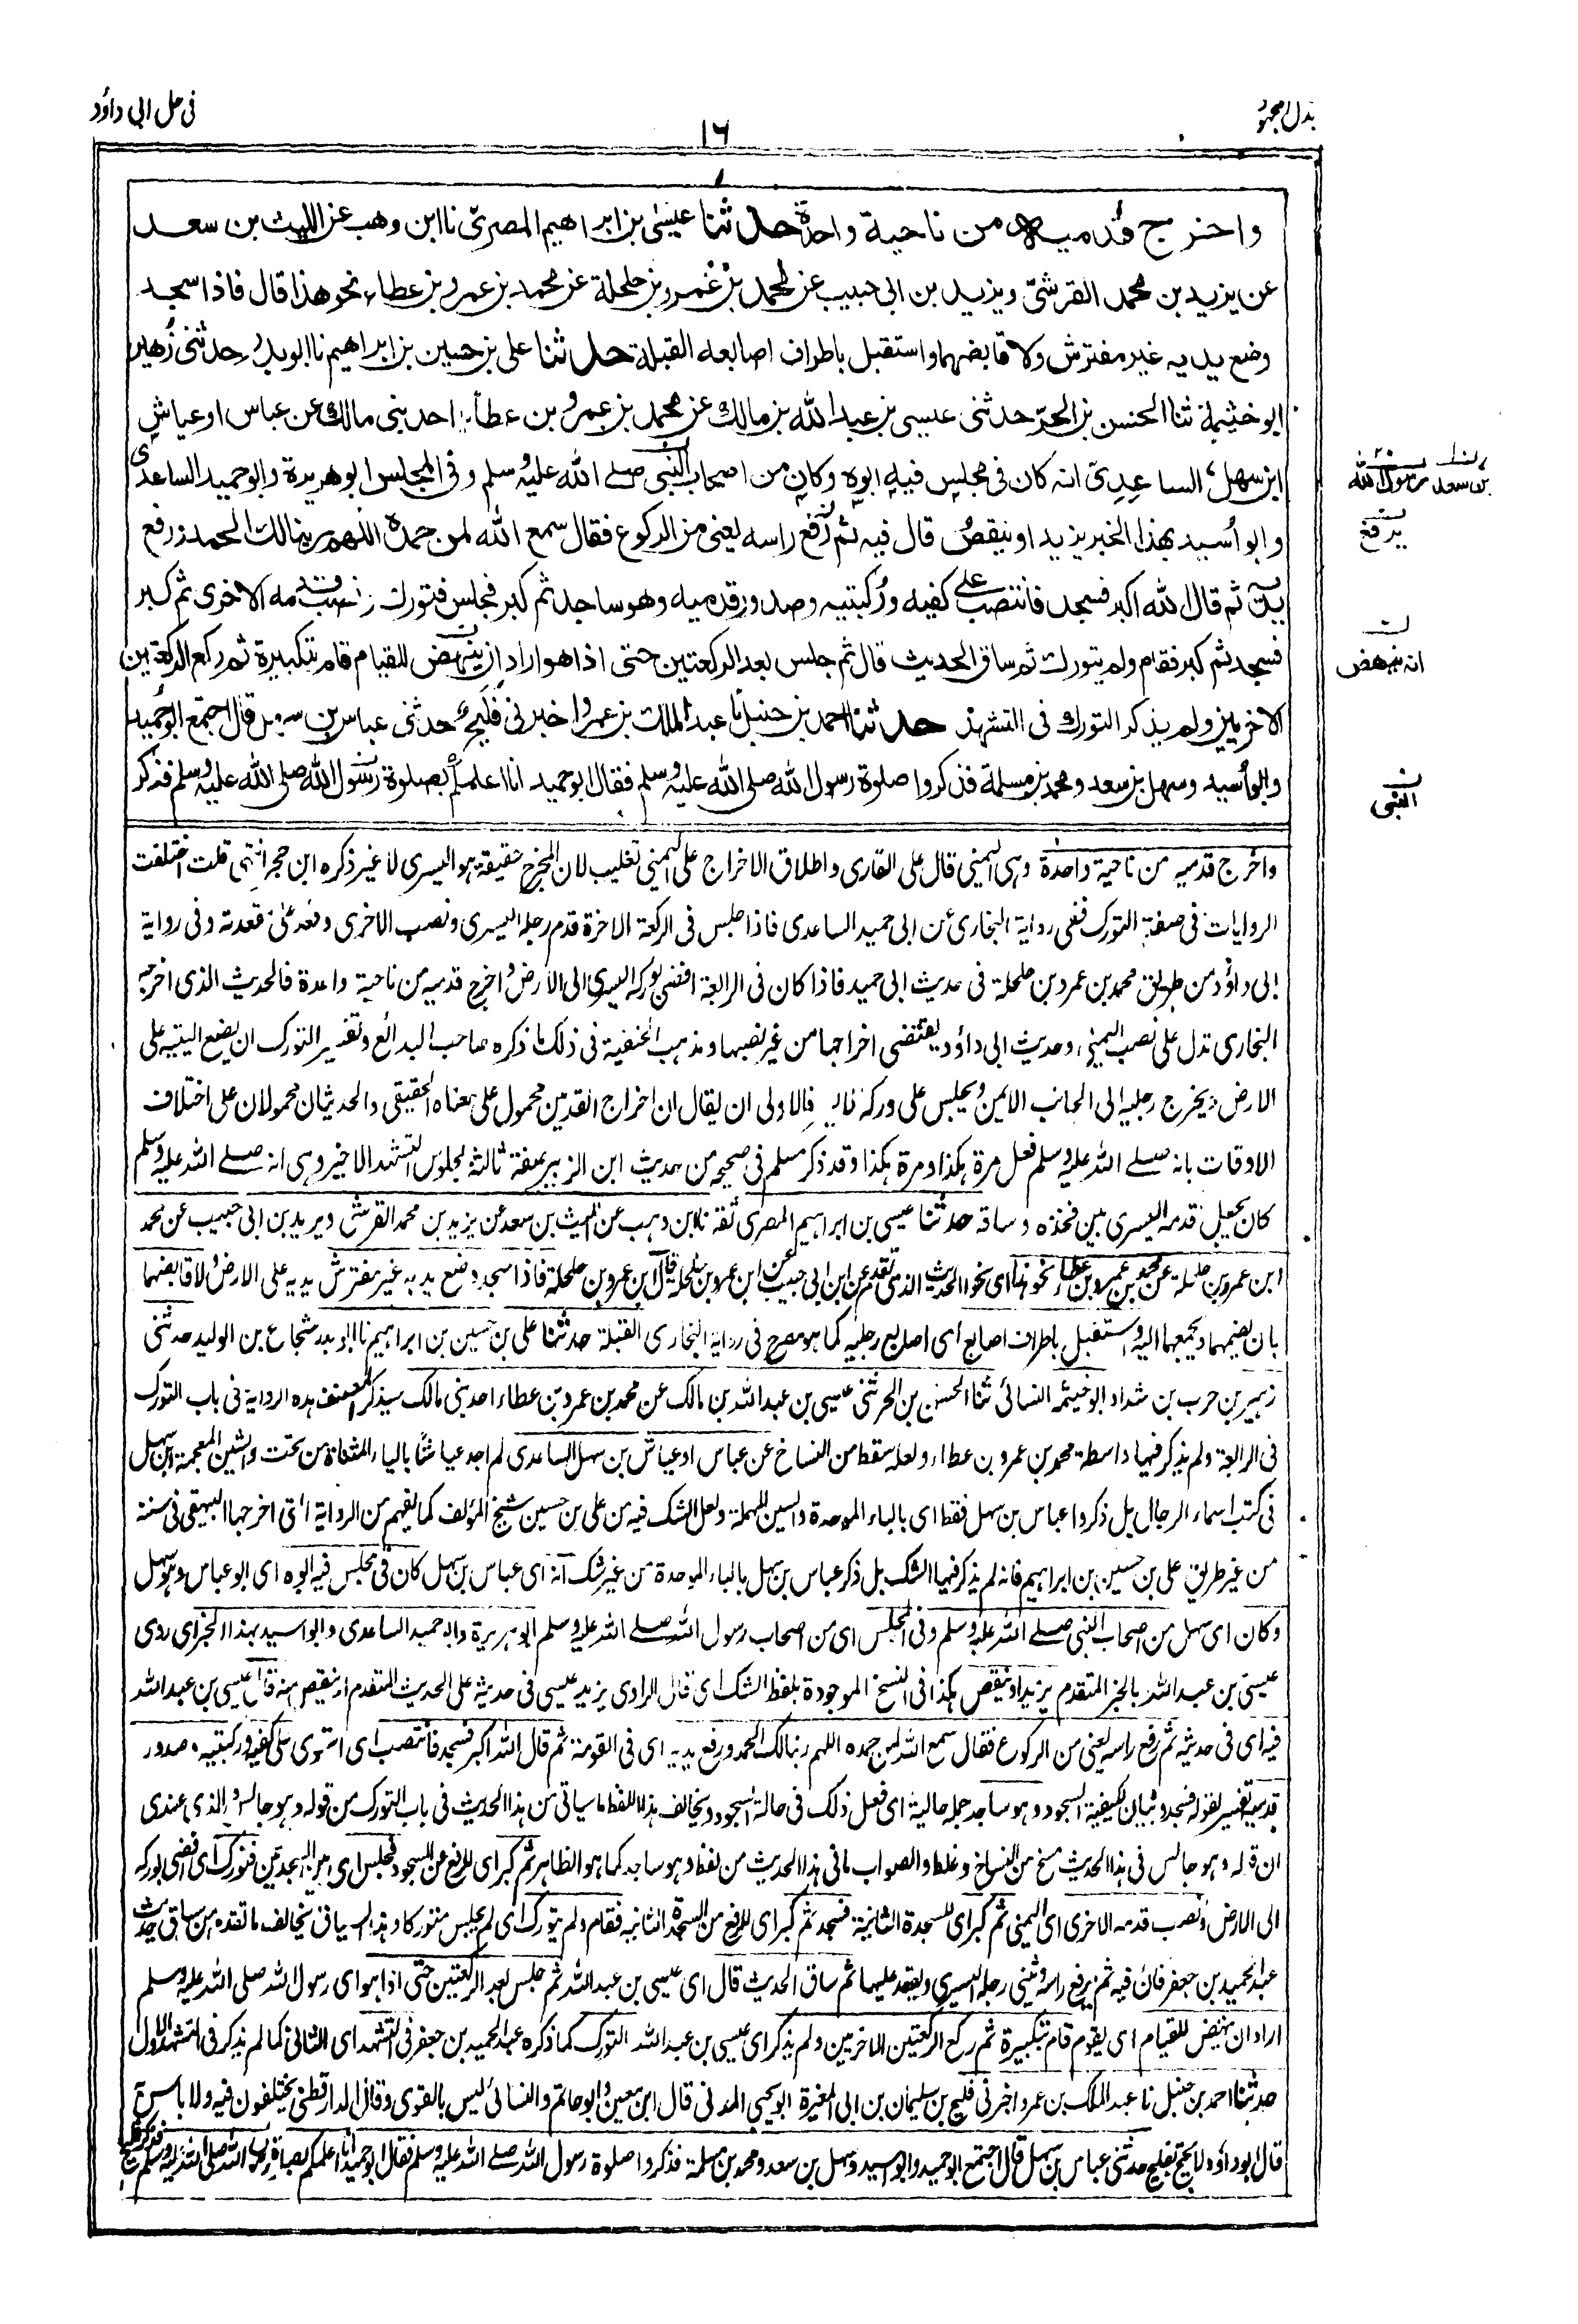 بذل المجهود
١٦
فى حل ابى داؤد
واخرج قدميه من ناحية واحدة حدثنا عيسى بن ابراهيم المصرى نا ابن وهب عن الليث بن سعد
عن يزيد بن محمد القرشى ويزيد بن ابى حبيب عن محمد بن عمرو بن حلحلة عن محمد بن عمرو بن عطاء نحو هذا قال فاذا سجد
وضع يديه غير مفترش ولا قابضهما واستقبل باطراف اصابعه القبلة حدثنا على بن حسين بن ابراهيم نا ابو بدر حدثنى زهير
ابو خيثمة ثنا الحسن بن الحر حدثنى عيسى بن عبد الله بن مالك عن محمد بن عمرو بن عطاء احد بنى مالك عن عباس او عياش
ابن سهل الساعدى انه كان فى مجلس فيه ابوه وكان من اصحاب النبى صلے الله عليه وسلم وفى المجلس ابو هريرة وابو حميد الساعدى
وابو أسيد بهذا الخبر يزيد او ينقص قال فيه ثم رفع راسه يعنى من الركوع فقال سمع الله لمن حمده اللهم ربنا لك الحمد ورفع
يديه ثم قال الله اكبر فسجد فانتصب على كفيه وركبتيه وصدور قدميه وهو ساجد ثم كبر فجلس فتورك ونصب قدمه الاخرى ثم كبر
فسجد ثم كبر فقام ولم يتورك ثم ساق الحديث قال ثم جلس بعد الركعتين حتى اذا هو اراد ان ينهض للقيام قام بتكبيرة ثم ركع الركعتين
الاخريين ولم يذكر التورك فى التشهد حدثنا احمد بن حنبل نا عبد الملك بن عمرو اخبرنى فليح حدثنى عباس بن سهل قال اجتمع ابو حميد
وابو أسيد وسهل بن سعد ومحمد بن مسلمة فذكروا صلوة رسول الله صلى الله عليه وسلم فقال ابو حميد انا اعلمكم بصلوة رسول الله صلى الله عليه وسلم فذكر
بن سعد رسول الله
يرفع
انه ينهض
النبى
واخرج قدميه من ناحية واحدة وهى اليمنى قال على القارى واطلاق الاخراج على اليمنى تغليب لان المخرج حقيقة هو اليسرى لا غير ذكره ابن حجر انتهى قلت اختلفت
الروايات فى صفة التورك ففى رواية البخارى عن ابى حميد الساعدى فاذا جلس فى الركعة الاخرة قدم رجله اليسرى ونصب الاخرى وقعد على مقعدته وفى رواية
ابى داؤد من طريق محمد بن عمرو بن حلحلة فى حديث ابى حميد فاذا كان فى الرابعة افضى بوركه اليسرى الى الارض واخرج قدميه من ناحية واحدة فالحديث الذى اخرجه
البخارى تدل على نصب اليمنى وحديث ابى داؤد يقتضى اخراجها من غير نصبها ومذهب الحنفية فى ذلك ما ذكره صاحب البدائع وتفسير التورك ان يضع اليتيه على
الارض ويخرج رجليه الى الجانب الايمن ويجلس على وركه فالاولى ان يقال ان اخراج القدمين محمول على معناه الحقيقى والحديثان محمولان على اختلاف
الاوقات بانه صلے الله عليه وسلم فعل مرة هكذا ومرة هكذا وقد ذكر مسلم فى صحيحه من حديث ابن الزبير صفة ثالثة لجلوس التشهد الاخير وهى انه صلے الله عليه وسلم
كان يجعل قدمه اليسرى بين فخذه وساقه حدثنا عيسى بن ابراهيم المصرى ثقة نا ابن وهب عن الليث بن سعد عن يزيد بن محمد القرشى ويزيد بن ابى حبيب عن محمد
ابن عمرو بن حلحلة عن محمد بن عمرو بن عطاء نحو هذا اى نحو الحديث الذى تقدم عن ابن ابى حبيب عن ابن عمرو بن حلحلة قال ابن عمرو بن حلحلة فاذا سجد وضع يديه غير مفترش يديه على الارض ولا قابضهما
بان يضمهما ويجمعهما اليه واستقبل باطراف اصابع اى اصابع رجليه كما هو مصرح فى رواية البخارى القبلة حدثنا على بن حسين بن ابراهيم نا ابو بدر شجاع بن الوليد حدثنى
زهير بن حرب بن شداد ابو خيثمة النسائى ثنا الحسن بن الحر ثنى عيسى بن عبد الله بن مالك عن محمد بن عمرو بن عطاء احد بنى مالك سيذكر المصنف هذه الرواية فى باب التورك
فى الرابعة ولم يذكر فيها واسطة محمد بن عمرو بن عطاء ولعله سقط من النساخ عن عباس او عياش بن سهل الساعدى لم اجد عياشا بالياء المثناة من تحت والشين المعجمة ابن سهل
فى كتب اسماء الرجال بل ذكروا عباس بن سهل فقط اى بالباء الموحدة والسين المهملة ولعل الشك فيه من على بن حسين شيخ المؤلف كما يفهم من الرواية التى اخرجها البيهقى فى سننه
من غير طريق على بن حسين بن ابراهيم فانه لم يذكر فيها الشك بل ذكر عباس بن سهل بالباء الموحدة من غير شك انه اى عباس بن سهل كان فى مجلس فيه ابوه اى ابو عباس وهو سهل
وكان اى سهل من اصحاب النبى صلے الله عليه وسلم وفى المجلس اى من اصحاب رسول الله صلے الله عليه وسلم ابو هريرة وابو حميد الساعدى وابو اسيد بهذا الخبر اى روى
عيسى بن عبد الله بالخبر المتقدم يزيد او ينقص هكذا فى النسخ الموجودة بلفظ الشك اى قال الراوى يزيد عيسى فى حديثه على الحديث المتقدم او ينقص منه قال عيسى بن عبد الله
فيه اى فى حديثه ثم رفع راسه يعنى من الركوع فقال سمع الله لمن حمده اللهم ربنا لك الحمد ورفع يديه اى فى القومة ثم قال الله اكبر فسجد فانتصب اى استوى على كفيه وركبتيه وصدور
قدميه تفسير لقوله فسجد وبيان لكيفية السجود وهو ساجد جملة حالية اى فعل ذلك فى حالة السجود ويخالف هذا اللفظ ما سياتى من هذا الحديث فى باب التورك من قوله وهو جالس والذى عندى
ان قوله وهو جالس فى هذا الحديث مسخ من النساخ وغلط والصواب ما فى هذا الحديث من لفظ وهو ساجد كما هو الظاهر ثم كبر اى للرفع عن السجود فجلس اى بين السجدتين فتورك اى افضى بوركه
الى الارض ونصب قدمه الاخرى اى اليمنى ثم كبر اى للسجدة الثانية فسجد ثم كبر اى للرفع من السجدة الثانية فقام ولم يتورك اى لم يجلس متوركا وهذا السياق يخالف ما تقدم من سياق حديث
عبد الحميد بن جعفر فان فيه ثم يرفع راسه ويثنى رجله اليسرى ويقعد عليها ثم ساق الحديث قال اى عيسى بن عبد الله ثم جلس بعد الركعتين حتى اذا هو اى رسول الله صلى الله عليه وسلم
اراد ان ينهض للقيام اى يقوم قام بتكبيرة ثم ركع الركعتين الاخريين ولم يذكر اى عيسى بن عبد الله التورك كما ذكره عبد الحميد بن جعفر فى التشهد اى الثانى كما لم يذكر فى التشهد الاول
حدثنا احمد بن حنبل نا عبد الملك بن عمرو اخبرنى فليح بن سليمان بن ابى المغيرة ابو يحيى المدنى قال ابن معين وابو حاتم والنسائى ليس بالقوى وقال الدارقطنى يختلفون فيه ولا باس به
قال ابو داؤد لا يحتج بفليح حدثنى عباس بن سهل قال اجتمع ابو حميد وابو اسيد وسهل بن سعد ومحمد بن مسلمة فذكروا صلوة رسول الله صلے الله عليه وسلم فقال ابو حميد انا اعلمكم بصلوة رسول الله صلى الله عليه وسلم